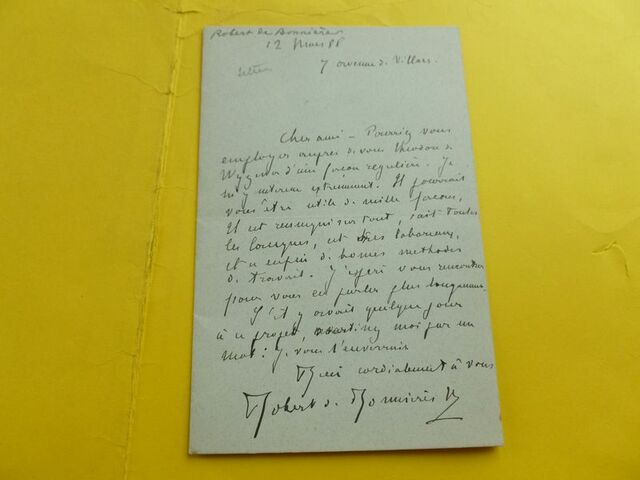 Robert de Bonnières
12 Mars 88
7 avenue de Villars.
Cher ami – Pourriez vous
employer auprès de vous Théodor de
Wyzewa d'une façon régulière. Je
m'y intéresse extrêmement. Il pourrait
vous être utile de mille façons,
Il est renseigné sur tout, sait toutes
les langues, est très laborieux,
et a enfin de bonnes methodes
de travail. J'espère vous rencontrer
pour vous en parler plus longuement.
S'il y avait quelque jour
à ce projet, avertissez moi par un
mot : Je vous l'enverrais
Bien cordialement à vous
Robert de Bonnières